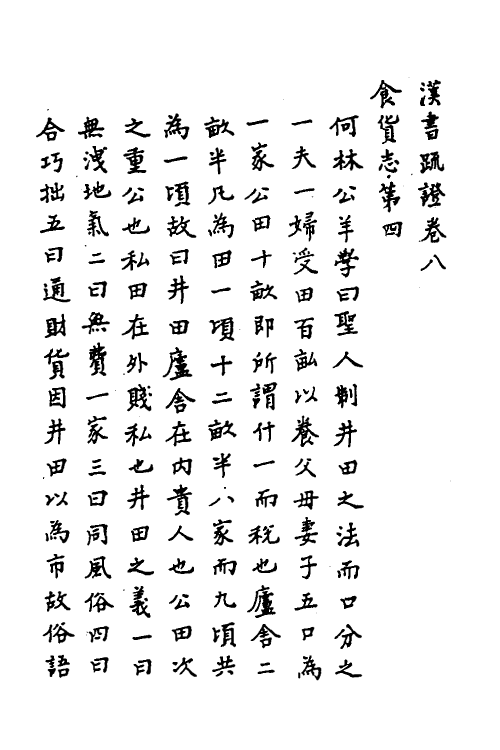 漢書疏證卷八
食貨志第四
何林公羊學曰聖人制井田之法而口分之
一夫一婦受田百畝以養父母妻子五口為
一家公田十畝即所謂什一而稅也廬舍二
畝半凡為田一頃十二畝半八家而九頃共
為一頃故曰井田廬舍在內貴人也公田次
之重公也私田在外賤私也井田之義一曰
無洩地氣二曰無費一家三曰同風俗四曰
合巧拙五曰通財貨因井田以為市故俗語